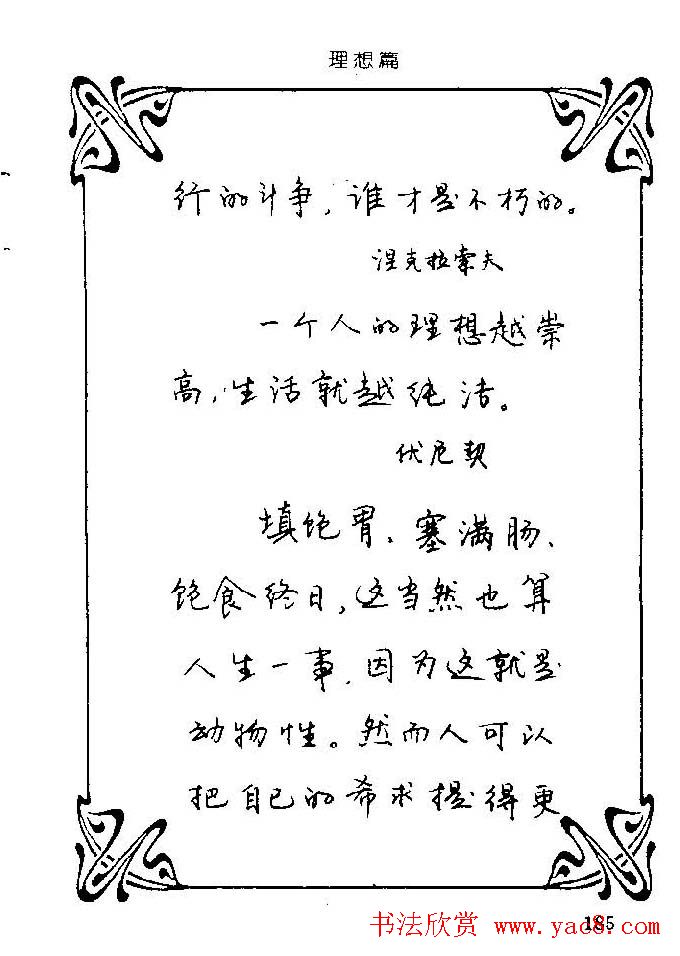 理想篇
行的斗争，谁才是不朽的。
涅克拉索夫
一个人的理想越崇
高，生活就越纯洁。
伏尼契
填饱胃、塞满肠、
饱食终日，这当然也算
人生一事，因为这就是
动物性。然而人可以
把自己的希求提得更
185
书法欣赏 www.yac8.com